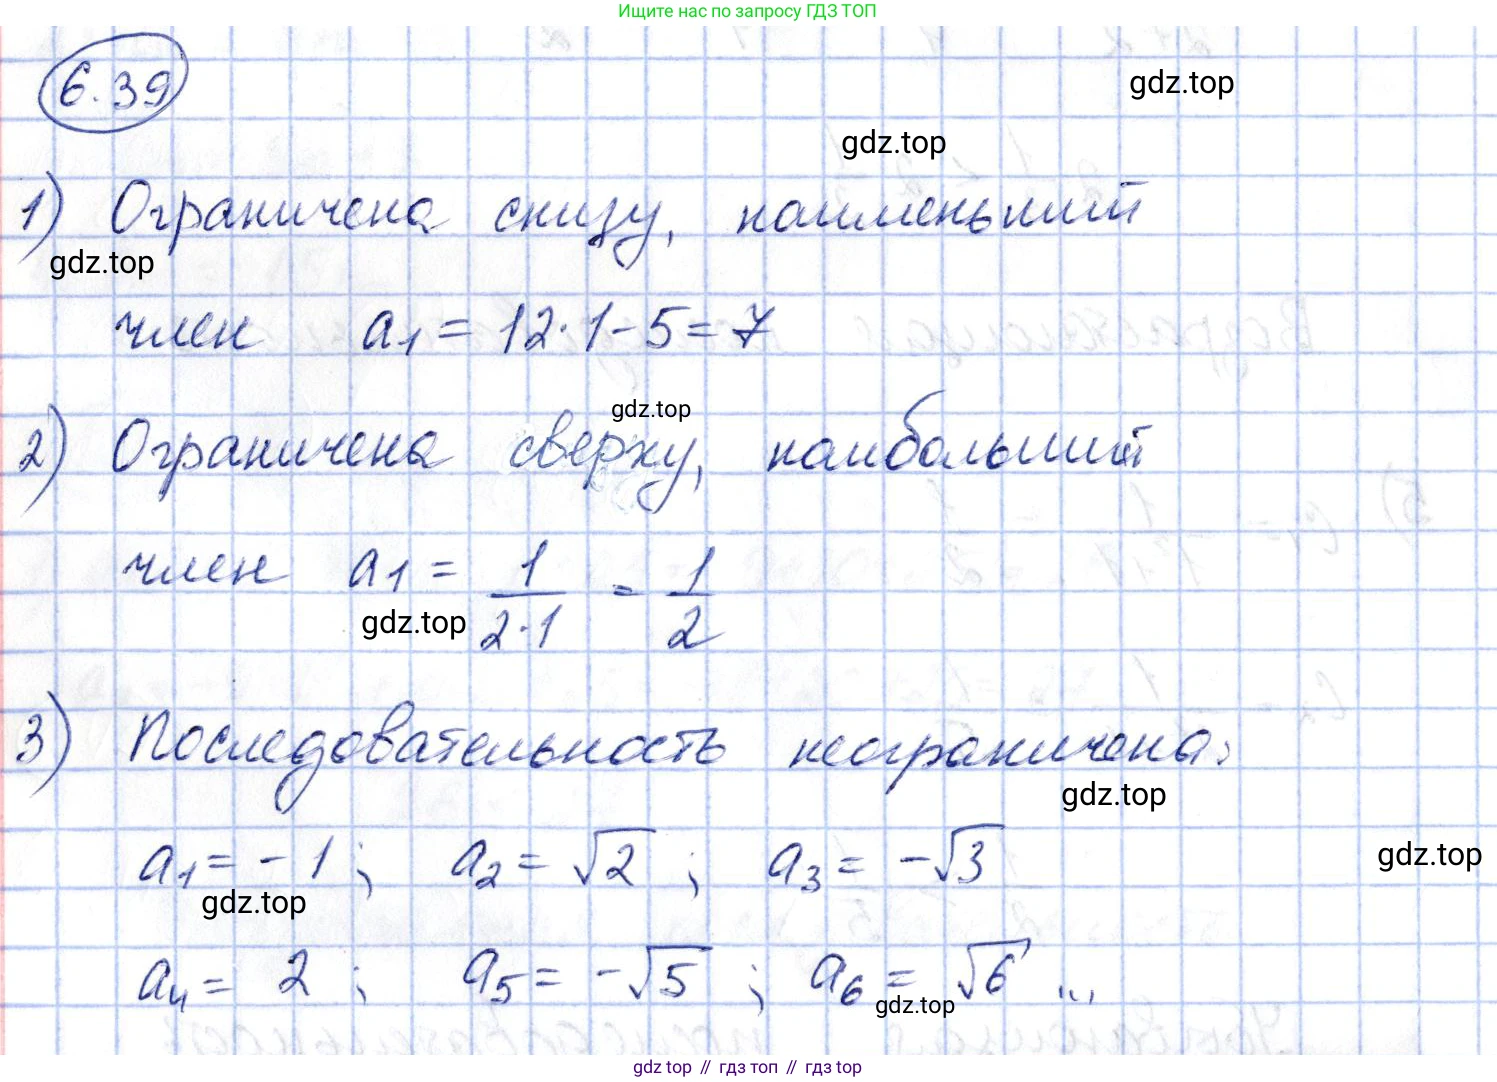 Ищите нас по запросу ГДЗ ТОП
6.39
gdz.top
gdz.top
1) Ограничена снизу, наименьший
gdz.top
член a₁ = 12·1-5=7
gdz.top
2) Ограничена сверху, наибольший
член a₁ = 1/(2·1) = 1/2
gdz.top
3) Последовательность неограничена:
gdz.top
a₁ = -1 ; a₂ = √2 ; a₃ = -√3
gdz.top
gdz.top
a₄ = 2 ; a₅ = -√5 ; a₆ = √6 ...
gdz.top
gdz top // гдз топ // гдз top